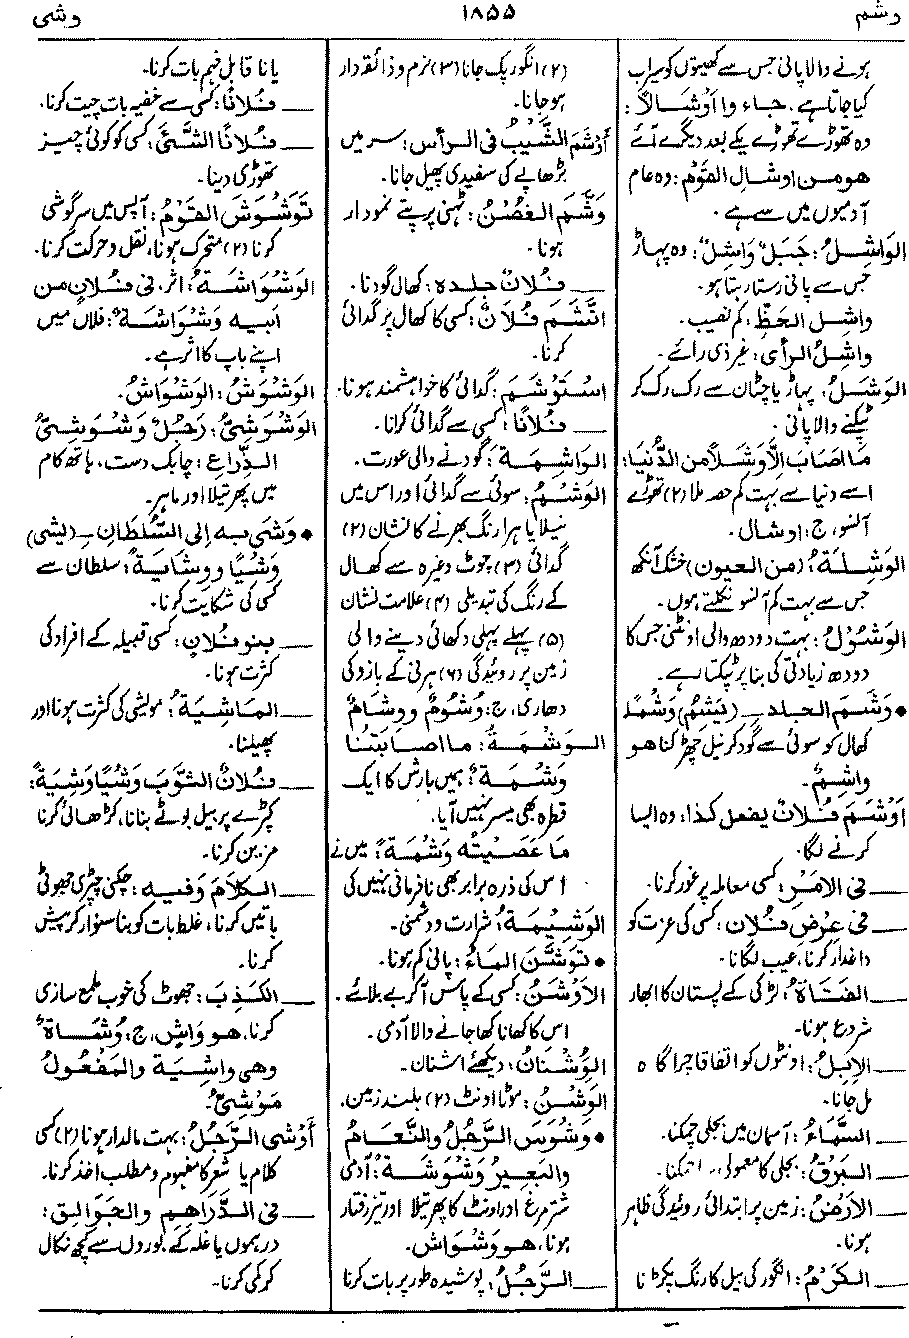 وشم ١٨٥٥ وشى
ہونے والا پانی جس سے کھیتوں کو سیراب
کیا جاتا ہے، جاء وا أوشالاً:
وہ تھوڑے تھوڑے یکے بعد دیگرے آئے
هو من اوشال القوم: وہ عام
آدمیوں میں سے ہے۔
الوَاشِلُ: جَبَلٌ وَاشِلٌ: وہ پہاڑ
جس سے پانی رستا رہتا ہو۔
واشِل الحَظّ: کم نصیب۔
واشِلُ الرأی: غیر ذی رائے۔
الوَشَلُ: پہاڑ یا چٹان سے رک رک کر
ٹپکنے والا پانی۔
مَا اصَابَ اِلَّا وَشَلًا مِن الدُّنیا:
اسے دنیا سے بہت کم حصہ ملا (۲) تھوڑے
آنسو، ج: اوشال۔
الوَشِلَةُ: (من العیون) خشک آنکھ
جس سے بہت کم آنسو نکلتے ہوں۔
الوَشُولُ: بہت دودھ والی اونٹنی جس کا
دودھ زیادتی کی بنا پر ٹپکتا ہے۔
• وَشَمَ الجلد ـِ (يَشِمُ) وَشْمًا
کھال کو سوئی سے گود کر نیل چھڑکنا هو
واشِمٌ۔
اَوْشَمَ فُلَانٌ یفعل کذا: وہ ایسا
کرنے لگا۔
ـــ فی الامْرِ: کسی معاملہ پر غور کرنا۔
ـــ فی عِرْضِ فُلان: کسی کی عزت کو
داغدار کرنا، عیب لگانا۔
ـــ الفَتَاةُ: لڑکی کے پستان کا ابھار
شروع ہونا۔
ـــ الاِبِلُ: اونٹوں کو اتفاقا چراگاہ
مل جانا۔
ـــ السَّمَاءُ: آسمان میں بجلی چمکنا۔
ـــ البَرْقُ: بجلی کا معمولی سا چمکنا۔
ـــ الاَرْضُ: زمین پر ابتدائی روئیدگی ظاہر
ہونا۔
ـــ الکَرْمُ: انگور کی بیل کا رنگ پکڑنا
(۲) انگور پک جانا (۳) نرم و ذائقہ دار
ہو جانا۔
أَوْشَمَ الشَّيْبُ فی الرأس: سر میں
بڑھاپے کی سفیدی پھیل جانا۔
وَشَّمَ الغُصْنُ: ٹہنی پر پتے نمودار
ہونا۔
ـــ فُلَانٌ جلده: کھال گودنا۔
اتَّشَمَ فُلَانٌ: کسی کا کھال پر گدائی
کرنا۔
اسْتَوْشَمَ: گدائی کا خواہشمند ہونا۔
ـــ فُلَانًا: کسی سے گدائی کرانا۔
الوَاشِمَةُ: گودنے والی عورت۔
الوَشْمُ: سوئی سے گدائی اور اس میں
نیلا یا ہرا رنگ بھرنے کا نشان (۲)
گدائی (۳) چوٹ وغیرہ سے کھال
کے رنگ کی تبدیلی (۴) علامت نشان
(۵) پہلے پہلی دکھائی دینے والی
زمین پر روئیدگی (۶) ہرنی کے بازو کی
دھاری، ج: وُشُومٌ ووِشَامٌ
الوَشْمَةُ: ما اصابَتْنَا
وَشْمَةٌ: ہمیں بارش کا ایک
قطرہ بھی میسر نہیں آیا۔
مَا عَصَيْتُه وَشْمَةً: میں نے
اس کی ذرہ برابر بھی نافرمانی نہیں کی
الوَشِيمَةُ: شرارت و دشمنی۔
• تَوَشَّنَ المَاءُ: پانی کم ہونا۔
الاَوْشَنُ: کسی کے پاس آ کر بے بلائے۔
اس کا کھانا کھا جانے والا آدمی۔
الوُشْنَانُ: دیکھئے اشنان۔
الوَشْنُ: موٹا اونٹ (۲) بلند زمین۔
• وَشْوَسَ الرَّجُلُ والنَّعَامُ
والبَعِيرُ وَشْوَشَةً: آدمی
شترمرغ اور اونٹ کا پھرتیلا اور تیز رفتار
ہونا، هو وَشْوَاش۔
ـــ الرَّجُلُ: پوشیدہ طور پر بات کرنا
یا ناقابل فہم بات کرنا۔
ـــ فُلانًا: کسی سے خفیہ بات چیت کرنا۔
ـــ فُلانًا الشَّيْءَ: کسی کو کوئی چیز
تھوڑی دینا۔
تَوَشْوَشَ القَوْمُ: آپس میں سرگوشی
کرنا (۲) متحرک ہونا، نقل و حرکت کرنا۔
الوَشْوَاشَةُ: اثر، فی فُلانٍ من
ابیه وَشْوَاشَةٌ: فلاں میں
اپنے باپ کا اثر ہے۔
الوَشْوَشُ: الوَشْوَاشُ۔
الوَشْوَشِيُّ: رَجُلٌ وَشْوَشِيُّ
الذِّرَاعِ: چابک دست، ہاتھ کام
میں پھرتیلا اور ماہر۔
• وَشَى به إلى السُّلطَانِ ـِ (یشی)
وَشْيًا ووِشايةً: سلطان سے
کسی کی شکایت کرنا۔
ـــ بنو فُلانٍ: کسی قبیلہ کے افراد کی
کثرت ہونا۔
ـــ المَاشِيَةُ: مویشی کی کثرت ہونا اور
پھیلنا۔
ـــ فُلانٌ الثَّوْبَ وَشْيًا وَشِيَةً:
کپڑے پر بیل بوٹے بنانا، کڑھائی کرنا
مزین کرنا۔
ـــ الكَلَامَ وَفيه: چکنی چپڑی جھوٹی
باتیں کرنا، غلط بات کو بنا سنوار کر پیش
کرنا۔
ـــ الكَذِبَ: جھوٹ کی خوب ملمع سازی
کرنا، هو وَاشٍ، ج: وُشَاةٌ
وهی واشِيَة والمَفْعُولُ
مَوْشِيٌّ۔
أَوْشَى الرَّجُلُ: بہت مالدار ہونا (۲) کسی
کلام یا شعر کا مفہوم و مطلب اخذ کرنا۔
ـــ فی الدَّرَاهِمِ والجَوَالِق:
درہموں یا غلہ کے بوروں سے کچھ نکال
کر کمی کرنا۔